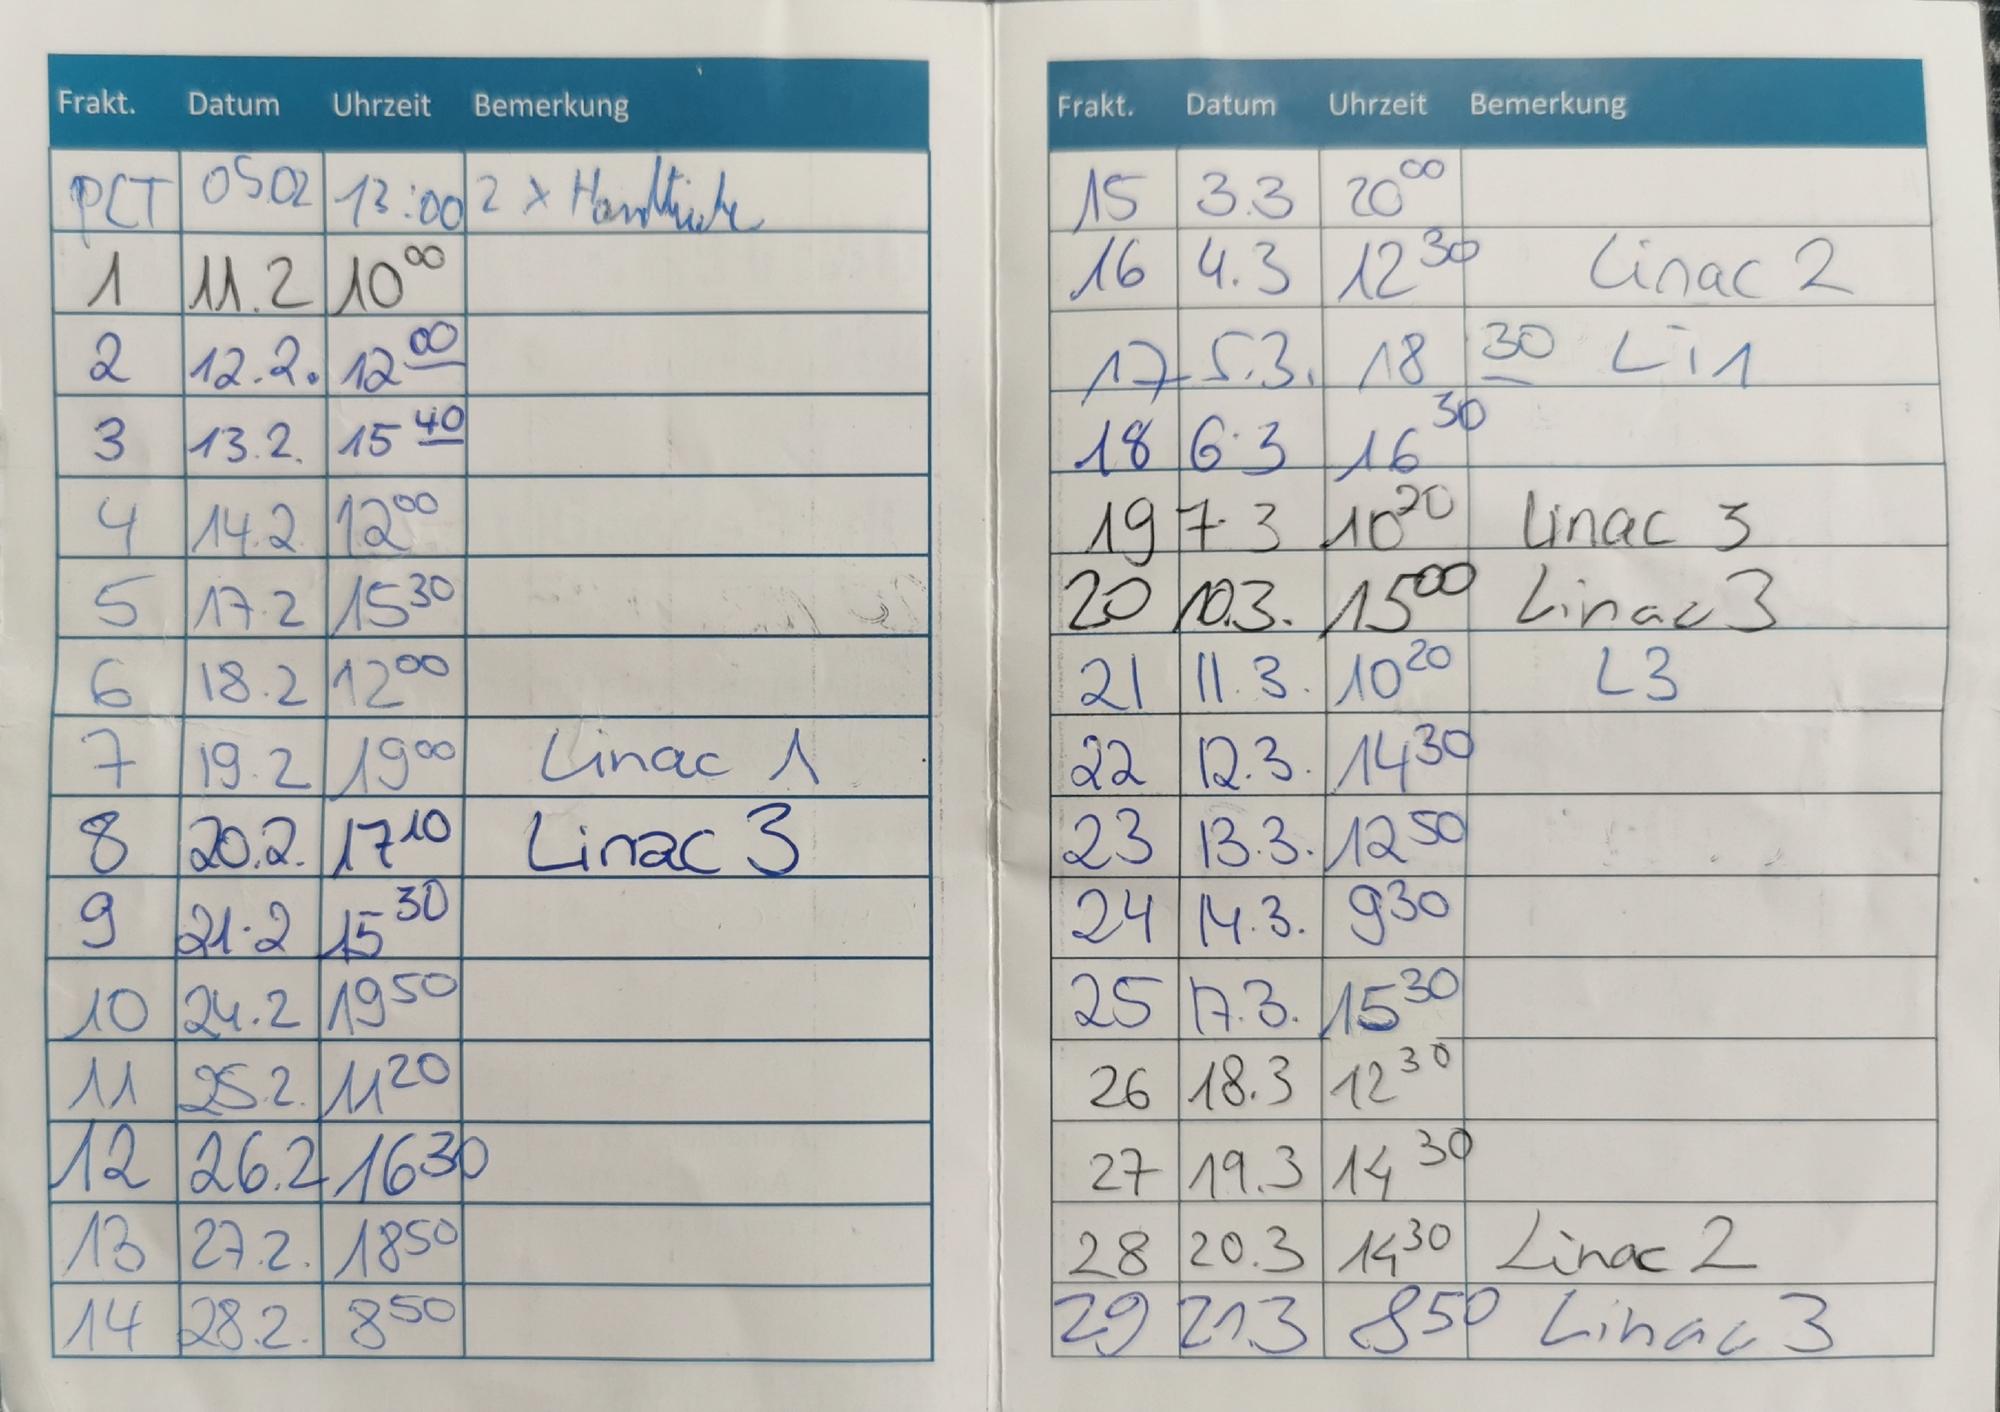 Frakt. Datum Uhrzeit Bemerkung
PCT 05.02 13:00 2 x Handtücher
1 11.2 10⁰⁰
2 12.2. 12⁰⁰
3 13.2. 15⁴⁰
4 14.2 12⁰⁰
5 17.2 15³⁰
6 18.2 12⁰⁰
7 19.2 19⁰⁰ Linac 1
8 20.2. 17¹⁰ Linac 3
9 21.2 15³⁰
10 24.2 19⁵⁰
11 25.2. 11²⁰
12 26.2 16³⁰
13 27.2. 18⁵⁰
14 28.2. 8⁵⁰
Frakt. Datum Uhrzeit Bemerkung
15 3.3 20⁰⁰
16 4.3 12³⁰ Linac 2
17 5.3. 18³⁰ Li1
18 6.3 16³⁰
19 7.3 10²⁰ Linac 3
20 10.3. 15⁰⁰ Linac 3
21 11.3. 10²⁰ L3
22 12.3. 14³⁰
23 13.3. 12⁵⁰
24 14.3. 9³⁰
25 17.3. 15³⁰
26 18.3 12³⁰
27 19.3 14³⁰
28 20.3 14³⁰ Linac 2
29 21.3 8⁵⁰ Linac 3